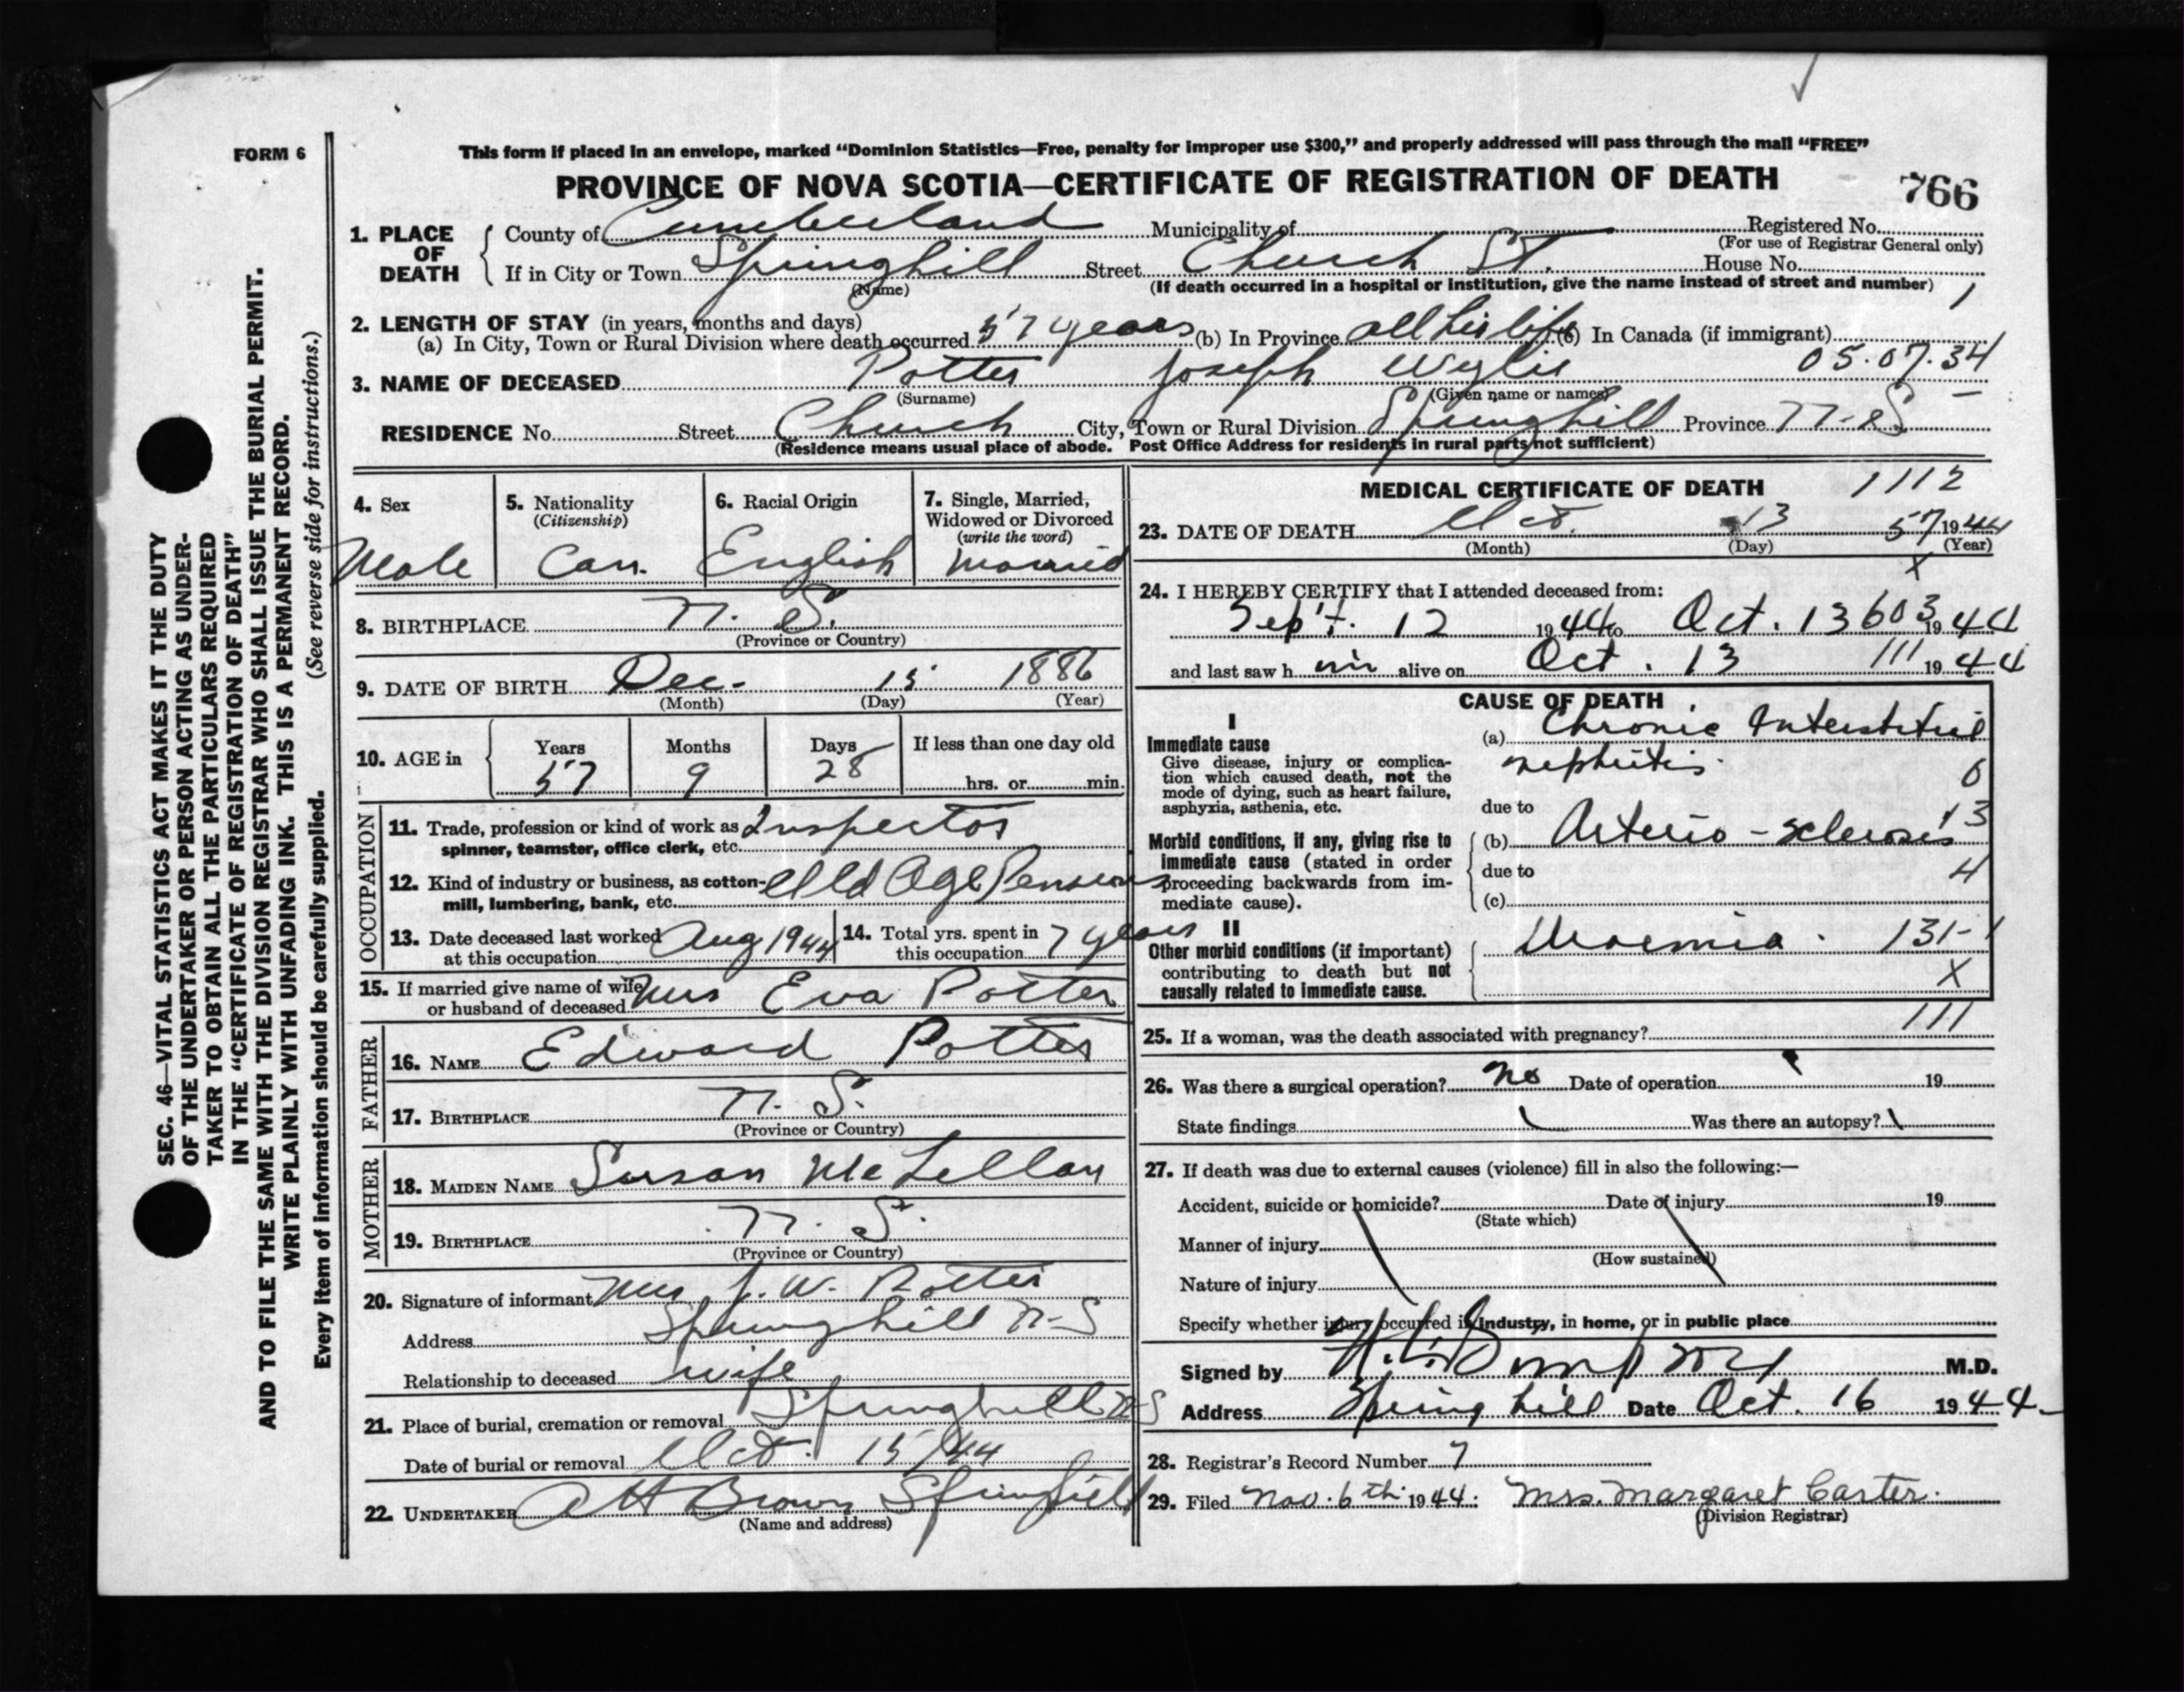 FORM 6
This form if placed in an envelope, marked “Dominion Statistics—Free, penalty for improper use $300,” and properly addressed will pass through the mail “FREE”
PROVINCE OF NOVA SCOTIA—CERTIFICATE OF REGISTRATION OF DEATH
766
1. PLACE OF DEATH
County of Cumberland Municipality of Registered No.
(For use of Registrar General only)
If in City or Town Springhill Street Church St. House No.
(Name) (If death occurred in a hospital or institution, give the name instead of street and number) 1
2. LENGTH OF STAY (in years, months and days)
(a) In City, Town or Rural Division where death occurred 57 years (b) In Province all his life (c) In Canada (if immigrant)
05.07.34
3. NAME OF DECEASED Potter Joseph Wylie
(Surname) (Given name or names)
RESIDENCE No. Street Church City, Town or Rural Division Springhill Province N-S
(Residence means usual place of abode. Post Office Address for residents in rural parts not sufficient)
4. Sex
Male
5. Nationality
(Citizenship)
Can.
6. Racial Origin
English
7. Single, Married,
Widowed or Divorced
(write the word)
Married
8. BIRTHPLACE N. S.
(Province or Country)
9. DATE OF BIRTH Dec. 15 1886
(Month) (Day) (Year)
10. AGE in
Years Months Days If less than one day old
57 9 28 hrs. or min.
OCCUPATION
11. Trade, profession or kind of work as Inspector
spinner, teamster, office clerk, etc.
12. Kind of industry or business, as cotton- Old Age Pensions
mill, lumbering, bank, etc.
13. Date deceased last worked Aug 1944
at this occupation
14. Total yrs. spent in 7 years
this occupation
15. If married give name of wife Mrs Eva Potter
or husband of deceased
FATHER
16. NAME Edward Potter
17. BIRTHPLACE N. S.
(Province or Country)
MOTHER
18. MAIDEN NAME Susan McLellan
19. BIRTHPLACE N. S.
(Province or Country)
20. Signature of informant Mrs J. W. Potter
Address Springhill N-S
Relationship to deceased wife
21. Place of burial, cremation or removal Springhill N-S
Date of burial or removal Oct. 15/44
22. UNDERTAKER A H Brown Springhill
(Name and address)
MEDICAL CERTIFICATE OF DEATH 1112
23. DATE OF DEATH Oct. 13 57 1944
(Month) (Day) (Year)
X
24. I HEREBY CERTIFY that I attended deceased from:
Sep't. 12 1944 to Oct. 13 603 1944
and last saw h im alive on Oct. 13 111 1944
CAUSE OF DEATH
I
Immediate cause
Give disease, injury or complica-
tion which caused death, not the
mode of dying, such as heart failure,
asphyxia, asthenia, etc.
(a) Chronic Interstitial
nephritis 0
due to
Morbid conditions, if any, giving rise to
immediate cause (stated in order
proceeding backwards from im-
mediate cause).
(b) Arterio-sclerosis 13
due to 4
(c)
II
Other morbid conditions (if important)
contributing to death but not
causally related to immediate cause.
Uraemia. 131-1
X
25. If a woman, was the death associated with pregnancy? 111
26. Was there a surgical operation? no Date of operation 19
State findings Was there an autopsy?
27. If death was due to external causes (violence) fill in also the following:—
Accident, suicide or homicide? Date of injury 19
(State which)
Manner of injury
(How sustained)
Nature of injury
Specify whether injury occurred in industry, in home, or in public place
Signed by M.D.
Address Springhill Date Oct. 16 1944
28. Registrar's Record Number 7
29. Filed Nov. 6th 1944. Mrs. Margaret Carter.
(Division Registrar)
SEC. 46—VITAL STATISTICS ACT MAKES IT THE DUTY
OF THE UNDERTAKER OR PERSON ACTING AS UNDER-
TAKER TO OBTAIN ALL THE PARTICULARS REQUIRED
IN THE “CERTIFICATE OF REGISTRATION OF DEATH”
AND TO FILE THE SAME WITH THE DIVISION REGISTRAR WHO SHALL ISSUE THE BURIAL PERMIT.
WRITE PLAINLY WITH UNFADING INK. THIS IS A PERMANENT RECORD.
Every item of information should be carefully supplied. (See reverse side for instructions.)